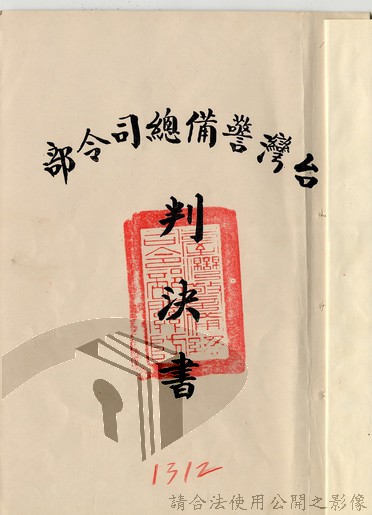 台灣警備總司令部
判決書
1312
請合法使用公開之影像